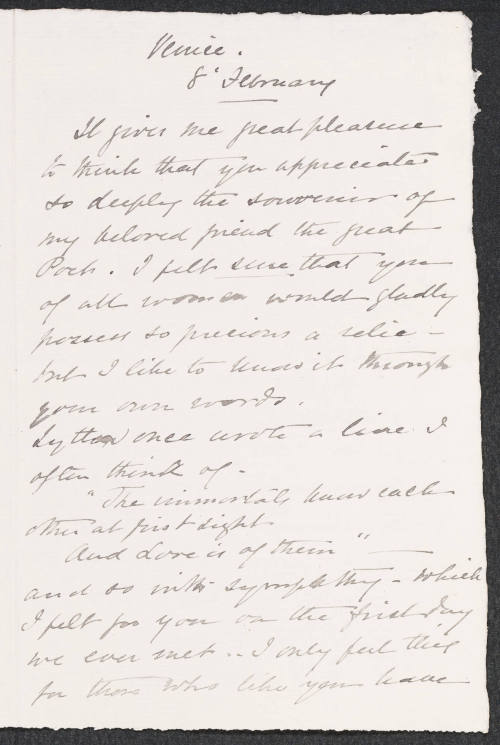 Venice.
8' February
It gives me great pleasure
to think that you appreciate
so deeply the souvenir of
my beloved friend the great
Poet. I felt sure that you
of all women would gladly
possess so precious a relic -
but I like to know it through
your own words.
Lytton once wrote a line I
often think of -
"The immortals know each
other at first sight
And Love is of them" —
and so with sympathy - which
I felt for you on the first day
we ever met .. I only feel this
for those who like you have